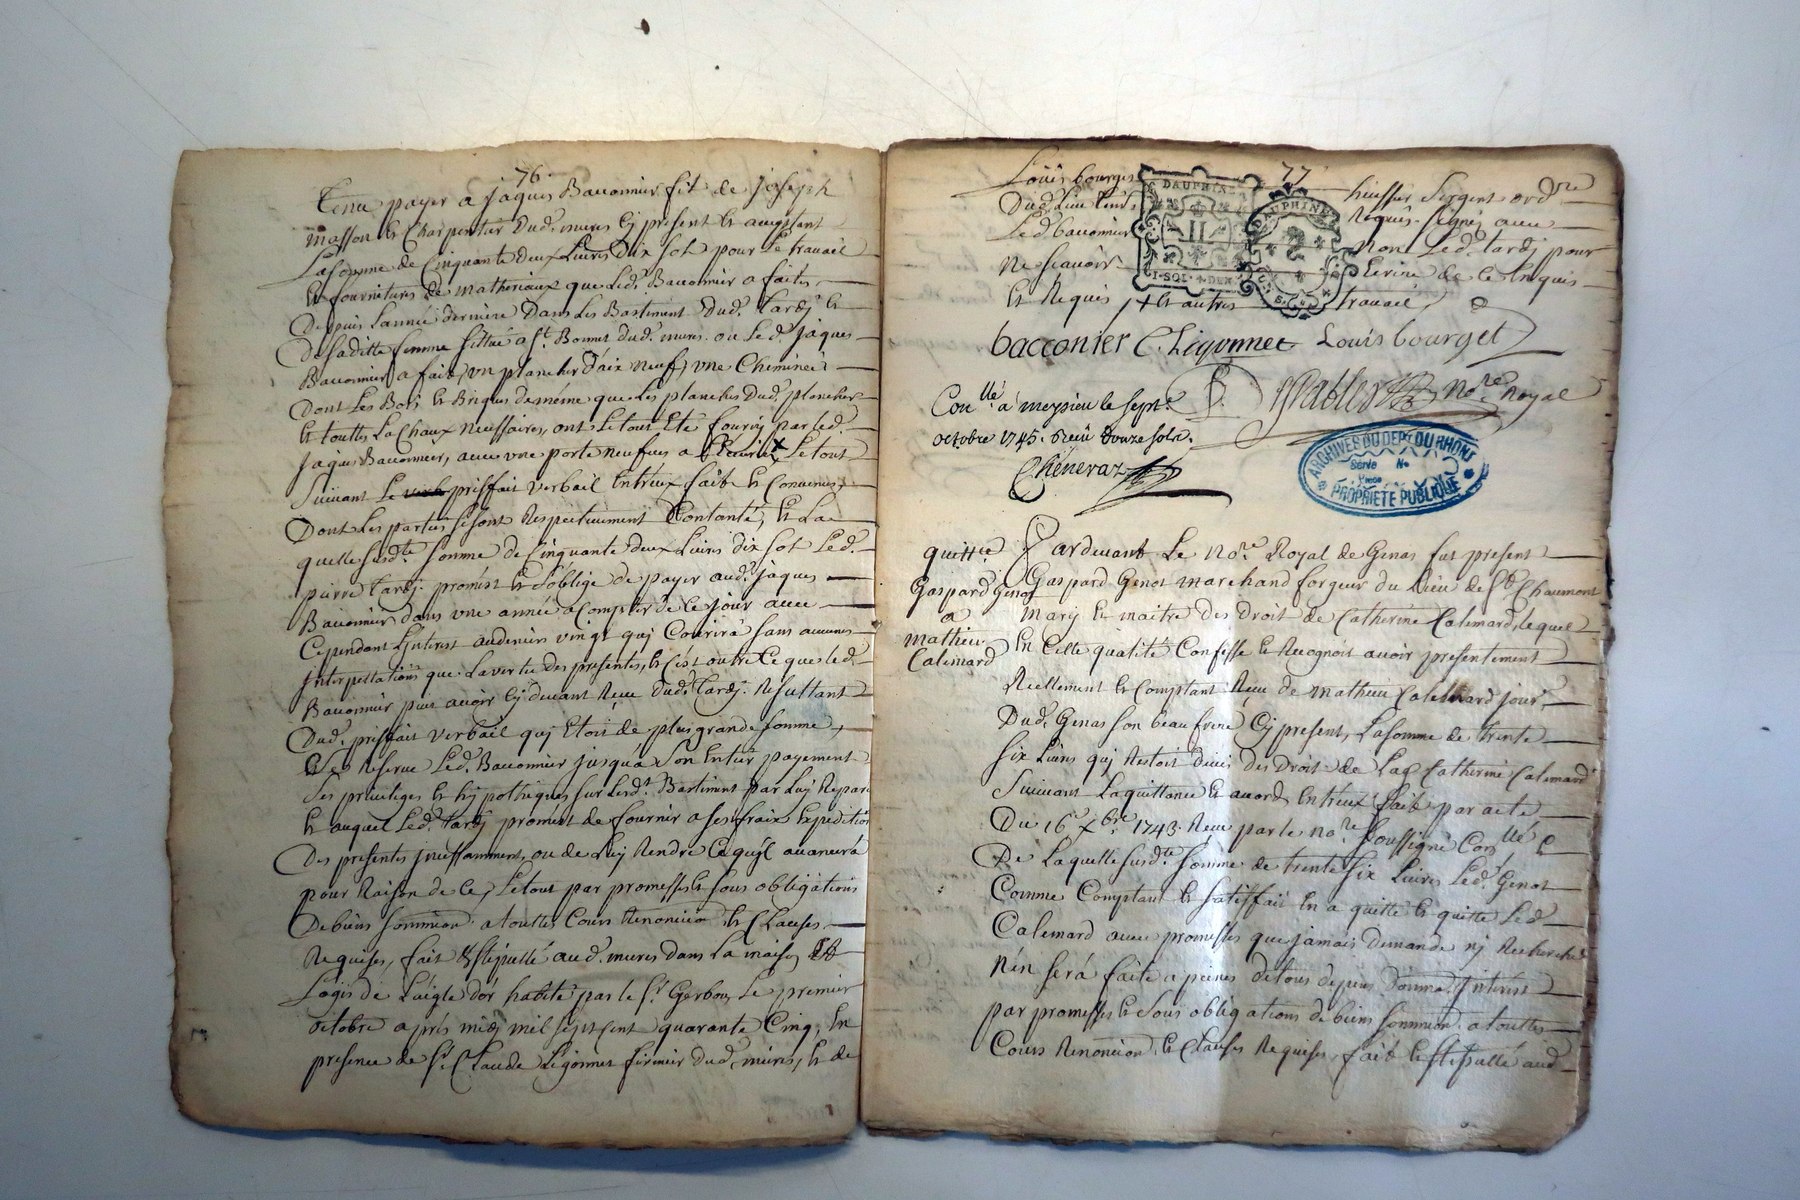 76
tenu payer a jaques Bacconnier fil de joseph
masson & Charpentier dud. mures Cy present & acceptant
La somme de Cinquante deux Livres dix sol pour Le travail
& fournitures de matheriaux que Led. Bacconnier a faites
Depuis Lannée derniere Dans Les Bastiment dud. tardy &
De sa ditte femme sittué a St. Bonnet dud. mures ou Led. jaques
Bacconnier a fait, un plancher d'aix neuf, une Cheminée
Dont Les Bois & Briques de même que Les planches dud. plancher
& touttes La Chaux necessaires, ont Le tout été fourny par led.
jaques Bacconnier, avec une porte neufves a Lecurie, x Le tout
Suivant Le prisffait verbail Entreux fait & Convenus,
Dont Les parties se sont Respectivement Contanté, & La
quelle susdte. somme de Cinquante deux Livres dix sol Led.
pierre tardy promest & s'oblige de payer aud. jaques
Bacconnier dans une année a Compter de Ce jour avec
Cependant L'interest au denier vingt quy Courira sans aucunes
jnterpellations que La vertu des presentes, & C'est outre Ce que led.
Bacconnier peut avoir Cy devant Reçu dud. tardy Resultant
Dud. prisfait verbail quy Etoit de plus grande somme,
Se Reserve Led. Bacconnier jusqu'a son Entier payement
Ses privileges & hypotheques sur Lesd. Bastiment par Luy Reparé
& auquel Led. tardy promest de fournir a ses fraix Expedition
Des presentes jncessamment, ou de Luy Rendre Ce qu'il avancera
pour Raison de Ce, Le tout par promesses & sous obligations
De biens soumission a touttes Cours Renonciõn & Clauses
Requises, fait & stipullé aud. mures dans La maison &
Logis de L'aigle d'or habité par le Sr. Gerbon Le premier
octobre apres midy mil sept Cent quarante Cinq, En
presence de Sr. Claude Ligonnet fermier dud. mures, & de
77
Louis bourget huissier Sergent ordre.
Dud. Lieu temoins Requis. Signés avec
Led. bacconnier non Led. tardy pour
ne scavoir Ecrire de Ce Enquis
& Requis x & autres travail
bacconier C. Ligonnet Louis bourget
P. Pablet nore. Royal
Conllé. a meysieu le sept.
octobre 1745. Reçu Douze sols.
Cheneraz
DAUPHINE
II
I·SOL·4·DEN
DAUPHINE
2
ARCHIVES DU DEPt DU RHONE
Série No
PROPRIETE PUBLIQUE
quittce.
Gaspard Genot
a
Mathieu
Calemard
Pardevant Le Nore. Royal de Genas fut present
Gaspard Genot marchand forgeur du Lieu de St. Chaumont
mary & maitre des Droit de Catherine Calemard, lequel
En Celle qualité Confesse & Recognoit avoir presentement
Reellement & Comptant Reçu de Mathieu Calemard jour.
Dud. Genas son beau frere Cy present, La somme de trente
six Livres quy Restoit dües des Droit de Lad. Catherine Calemard
Suivant La quittance & accord Entreux fait par acte
Du 16e. Xbre. 1743. Reçu par le nore. soussigné Conllé. &
De Laquelle susdte. somme de trente six Livres Led. Genot
Comme Comptant & satisffait En a quitté & quitte Led.
Calemard avec promesses que jamais Demande ny Recherches
N'en sera faite a peines de tous depens Domma. Interest
par promesses & sous obligations de biens soumission a touttes
Cours Renonciõn & Clauses Requises, fait & stipullé aud.